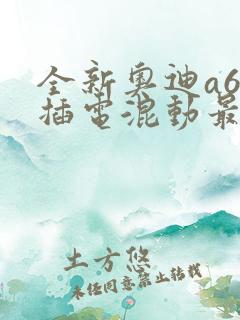 全新奥迪a6
插电混动最
土方悠
未经同意禁止转载